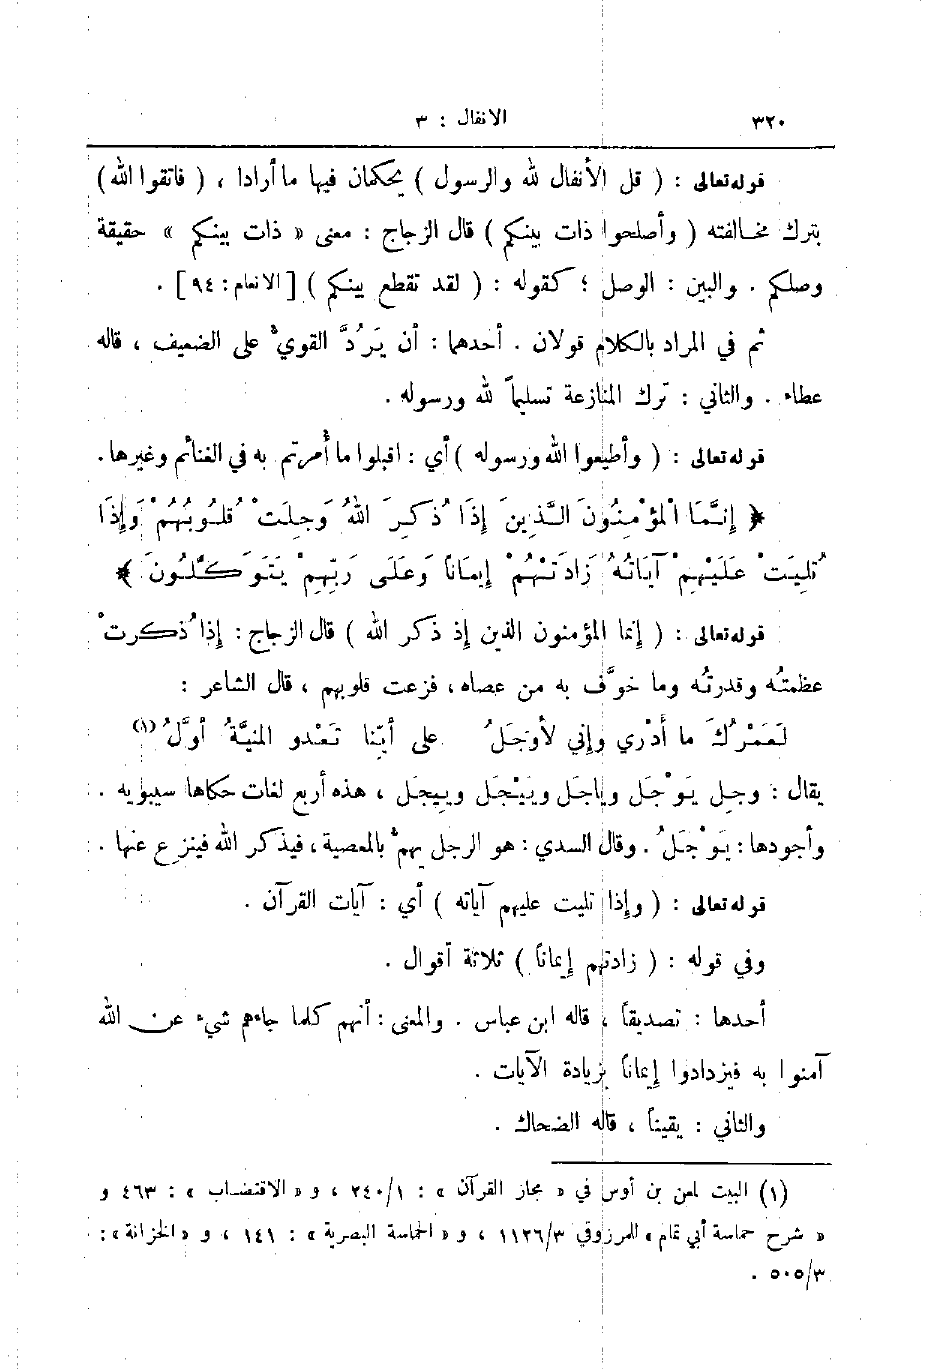 ٣٢٠ الانفال : ٣
قوله تعالى : ( قل الأنفال لله والرسول ) يحكمان فيها ما أرادا ، ( فاتقوا الله)
بترك مخالفته ( وأصلحوا ذات بينكم ) قال الزجاج : معنى « ذات بينكم » حقيقة
وصلكم . والبين : الوصل ؛ كقوله : ( لقد تقطع بينكم ) [ الانعام : ٩٤ ] .
ثم في المراد بالكلام قولان . أحدهما : أن يَرُدَّ القويُّ على الضعيف ، قاله
عطاء . والثاني : ترك المنازعة تسليماً لله ورسوله .
قوله تعالى : ( وأطيعوا الله ورسوله ) أي : اقبلوا ما أُمرتم به في الغنائم وغيرها .
﴿ إِنَّمَا الْمُؤْمِنُونَ الَّذِينَ إِذَا ذُكِرَ اللهُ وَجِلَتْ قُلُوبُهُمْ وَإِذَا
تُلِيَتْ عَلَيْهِمْ آيَاتُهُ زَادَتْهُمْ إِيمَاناً وَعَلَى رَبِّهِمْ يَتَوَكَّلُونَ ﴾
قوله تعالى : ( إنما المؤمنون الذين إذ ذكر الله ) قال الزجاج : إذا ذُكرتْ
عظمتُه وقدرتُه وما خوَّف به من عصاه ، فزعت قلوبهم ، قال الشاعر :
لَعَمْرُكَ ما أَدْري وإني لأَوْجَلُ على أيِّنا تَعْدو المنيَّةُ أوَّلُ (١)
يقال : وجل يَوْجَل وياجَل ويَيْجَل ويِيجَل ، هذه أربع لغات حكاها سيبويه .
وأجودها : يَوْجَلُ . وقال السدي : هو الرجل يهمُّ بالمعصية ، فيذكر الله فينزع عنها .
قوله تعالى : ( وإذا تليت عليهم آياته ) أي : آيات القرآن .
وفي قوله : ( زادتهم إيماناً ) ثلاثة أقوال .
أحدها : تصديقاً ، قاله ابن عباس . والمعنى : أنهم كلما جاءهم شيء عن الله
آمنوا به فيزدادوا إيماناً بزيادة الآيات .
والثاني : يقيناً ، قاله الضحاك .
(١) البيت لمعن بن أوس في « مجاز القرآن » : ٢٤٠/١ ، و « الاقتضاب » : ٤٦٣ و
« شرح حماسة أبي تمام » للمرزوقي ١١٢٦/٣ ، و « الحماسة البصرية » : ١٤١ ، و « الخزانة » :
٥٠٥/٣ .